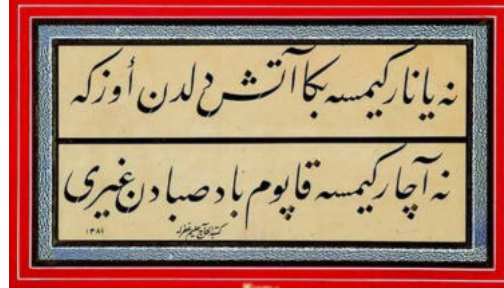 نه يانار كيمسه بكا آتش دلدن أوزكه
نه آچار كيمسه قاپوم باد صبادن غيری
كتبه الحاج حليم غفر له
١٣٨١